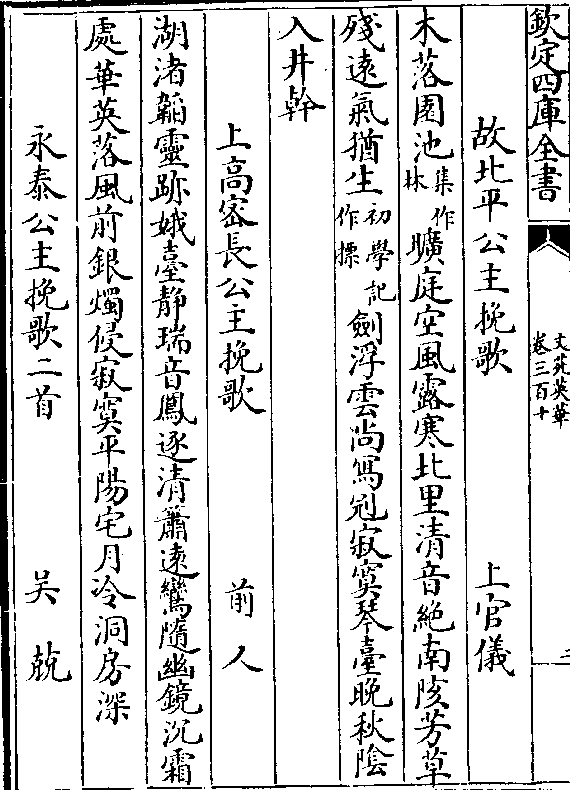 欽定四庫全書
文苑英華
卷三百十
二
故北平公主挽歌 上官儀
木落園池集作林曠庭空風露寒北里清音絶南陔芳草
殘遠氣猶生初學記作摽劍浮雲尚寫冠寂寞琴臺晚秋陰
入井幹
上高宻長公主挽歌 前人
湖渚韜靈跡娥臺静瑞音鳳逐清簫遠鸞隨幽鏡沉霜
處華英落風前銀燭侵寂寞平陽宅月冷洞房深
永泰公主挽歌二首 吴兢